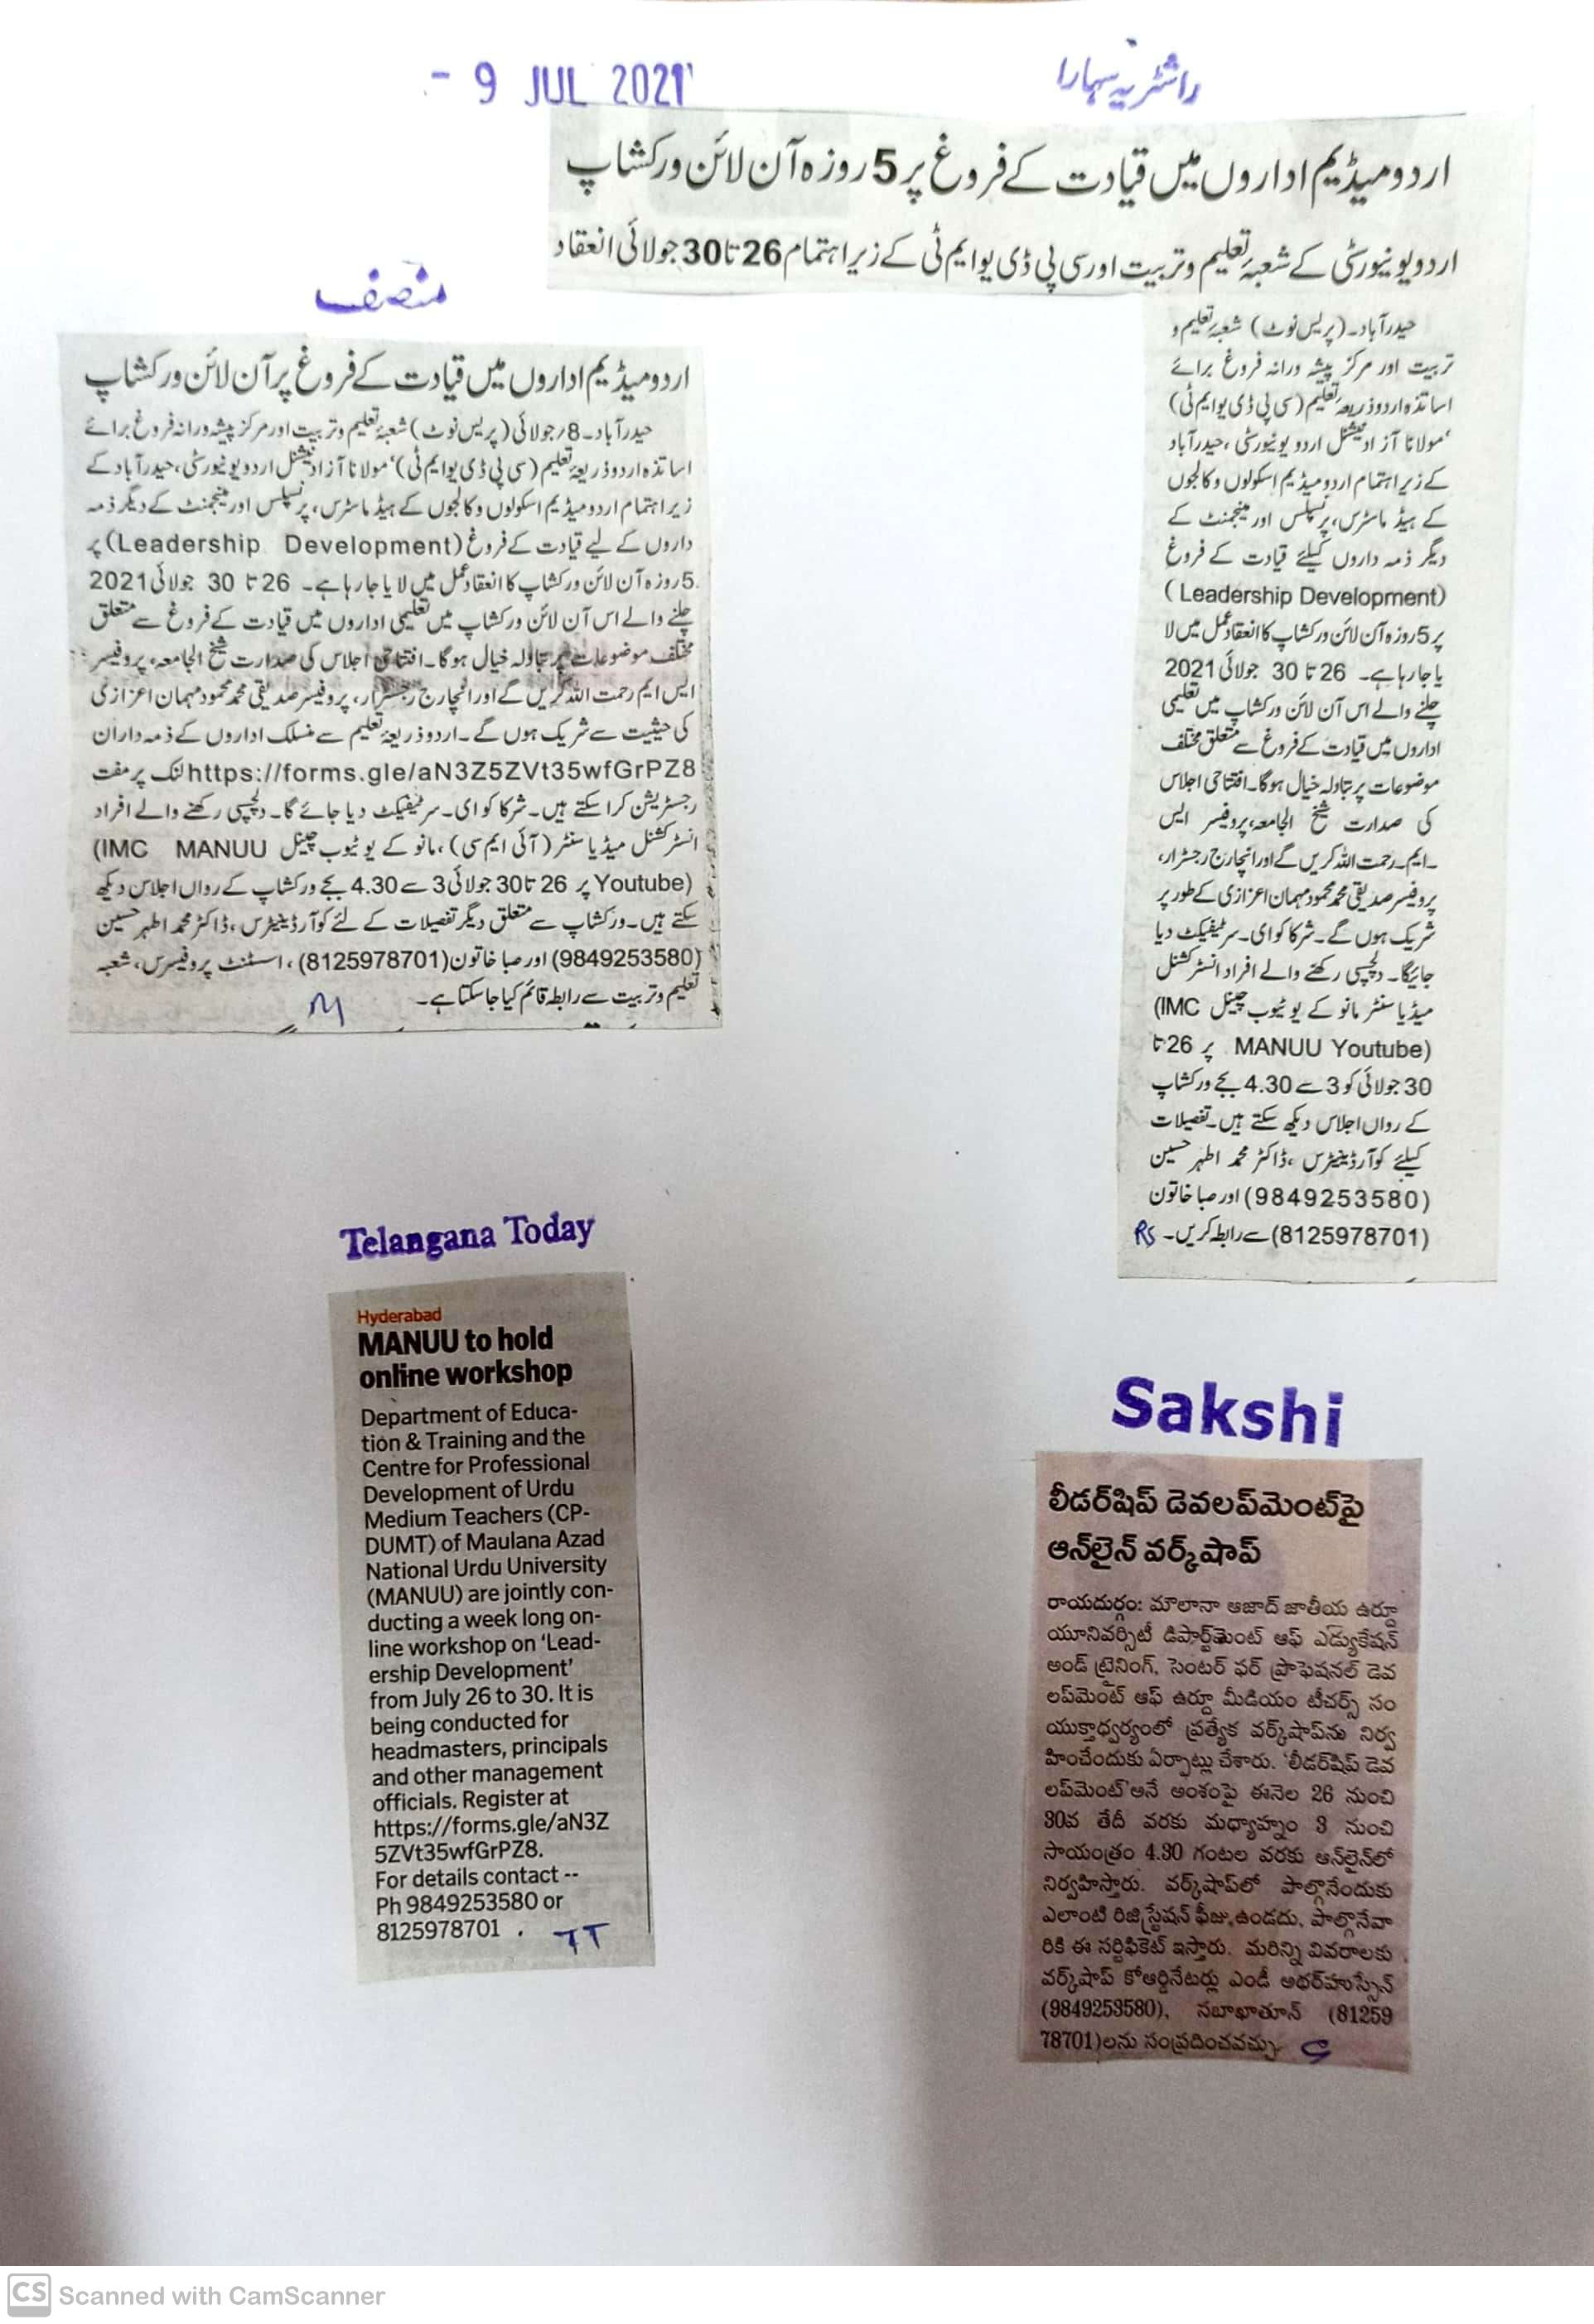 - 9 JUL 2021
راشٹریہ سہارا
اردو میڈیم اداروں میں قیادت کے فروغ پر 5 روزہ آن لائن ورکشاپ
اردو یونیورسٹی کے شعبۂ تعلیم و تربیت اور سی پی ڈی یو ایم ٹی کے زیر اہتمام 26 تا 30 جولائی انعقاد
حیدرآباد۔ (پریس نوٹ) شعبۂ تعلیم و
تربیت اور مرکز پیشہ ورانہ فروغ برائے
اساتذہ اردو ذریعہ تعلیم (سی پی ڈی یو ایم ٹی)
’مولانا آزاد نیشنل اردو یونیورسٹی، حیدرآباد
کے زیر اہتمام اردو میڈیم اسکولوں و کالجوں
کے ہیڈ ماسٹرس، پرنسپلس اور مینجمنٹ کے
دیگر ذمہ داروں کیلئے قیادت کے فروغ
(Leadership Development)
پر 5 روزہ آن لائن ورکشاپ کا انعقاد عمل میں لا
یا جا رہا ہے۔ 26 تا 30 جولائی 2021
چلنے والے اس آن لائن ورکشاپ میں تعلیمی
اداروں میں قیادت کے فروغ سے متعلق مختلف
موضوعات پر تبادلہ خیال ہوگا۔ افتتاحی اجلاس
کی صدارت شیخ الجامعہ، پروفیسر ایس
۔ایم۔ رحمت اللہ کریں گے اور انچارج رجسٹرار،
پروفیسر صدیقی محمد محمود مہمان اعزازی کے طور پر
شریک ہوں گے۔ شرکا کو ای۔ سرٹیفکیٹ دیا
جائیگا۔ دلچسپی رکھنے والے افراد انسٹرکشنل
میڈیا سنٹر مانو کے یوٹیوب چینل IMC)
(MANUU Youtube پر 26 تا
30 جولائی کو 3 سے 4.30 بجے ورکشاپ
کے رواں اجلاس دیکھ سکتے ہیں۔ تفصیلات
کیلئے کوآرڈینیٹرس، ڈاکٹر محمد اطہر حسین
(9849253580) اور صبا خاتون
(8125978701) سے رابطہ کریں۔ RS
منصف
اردو میڈیم اداروں میں قیادت کے فروغ پر آن لائن ورکشاپ
حیدرآباد۔ 8؍جولائی (پریس نوٹ) شعبۂ تعلیم و تربیت اور مرکز پیشہ ورانہ فروغ برائے
اساتذہ اردو ذریعۂ تعلیم (سی پی ڈی یو ایم ٹی)‘ مولانا آزاد نیشنل اردو یونیورسٹی، حیدرآباد کے
زیر اہتمام اردو میڈیم اسکولوں و کالجوں کے ہیڈ ماسٹرس، پرنسپلس اور مینجمنٹ کے دیگر ذمہ
داروں کے لیے قیادت کے فروغ (Leadership Development) پر
5 روزہ آن لائن ورکشاپ کا انعقاد عمل میں لایا جا رہا ہے۔ 26 تا 30 جولائی 2021
چلنے والے اس آن لائن ورکشاپ میں تعلیمی اداروں میں قیادت کے فروغ سے متعلق
مختلف موضوعات پر تبادلہ خیال ہوگا۔ افتتاحی اجلاس کی صدارت شیخ الجامعہ، پروفیسر
ایس ایم رحمت اللہ کریں گے اور انچارج رجسٹرار، پروفیسر صدیقی محمد محمود مہمان اعزازی
کی حیثیت سے شریک ہوں گے۔ اردو ذریعۂ تعلیم سے منسلک اداروں کے ذمہ داران
https://forms.gle/aN3Z5ZVt35wfGrPZ8 لنک پر مفت
رجسٹریشن کرا سکتے ہیں۔ شرکا کو ای۔ سرٹیفکیٹ دیا جائے گا۔ دلچسپی رکھنے والے افراد
انسٹرکشنل میڈیا سنٹر (آئی ایم سی)، مانو کے یوٹیوب چینل IMC MANUU)
(Youtube پر 26 تا 30 جولائی 3 سے 4.30 بجے ورکشاپ کے رواں اجلاس دیکھ
سکتے ہیں۔ ورکشاپ سے متعلق دیگر تفصیلات کے لئے کوآرڈینیٹرس، ڈاکٹر محمد اطہر حسین
(9849253580) اور صبا خاتون (8125978701)، اسسٹنٹ پروفیسرس، شعبہ
تعلیم و تربیت سے رابطہ قائم کیا جا سکتا ہے۔ M
Telangana Today
Hyderabad
MANUU to hold
online workshop
Department of Educa-
tion & Training and the
Centre for Professional
Development of Urdu
Medium Teachers (CP-
DUMT) of Maulana Azad
National Urdu University
(MANUU) are jointly con-
ducting a week long on-
line workshop on ‘Lead-
ership Development’
from July 26 to 30. It is
being conducted for
headmasters, principals
and other management
officials. Register at
https://forms.gle/aN3Z
5ZVt35wfGrPZ8.
For details contact --
Ph 9849253580 or
8125978701 . TT
Sakshi
లీడర్‌షిప్ డెవలప్‌మెంట్‌పై
ఆన్‌లైన్ వర్క్‌షాప్
రాయదుర్గం: మౌలానా ఆజాద్ జాతీయ ఉర్దూ
యూనివర్సిటీ డిపార్ట్‌మెంట్ ఆఫ్ ఎడ్యుకేషన్
అండ్ ట్రైనింగ్, సెంటర్ ఫర్ ప్రొఫెషనల్ డెవ
లప్‌మెంట్ ఆఫ్ ఉర్దూ మీడియం టీచర్స్ సం
యుక్తాధ్వర్యంలో ప్రత్యేక వర్క్‌షాప్‌ను నిర్వ
హించేందుకు ఏర్పాట్లు చేశారు. ‘లీడర్‌షిప్ డెవ
లప్‌మెంట్’అనే అంశంపై ఈనెల 26 నుంచి
30వ తేదీ వరకు మధ్యాహ్నం 3 నుంచి
సాయంత్రం 4.30 గంటల వరకు ఆన్‌లైన్‌లో
నిర్వహిస్తారు. వర్క్‌షాప్‌లో పాల్గొనేందుకు
ఎలాంటి రిజిస్ట్రేషన్ ఫీజు ఉండదు, పాల్గొనేవా
రికి ఈ సర్టిఫికెట్ ఇస్తారు. మరిన్ని వివరాలకు
వర్క్‌షాప్ కోఆర్డినేటర్లు ఎండీ అథర్‌హుస్సేన్
(9849253580), సబాఖాతూన్ (81259
78701)లను సంప్రదించవచ్చు.
CS Scanned with CamScanner